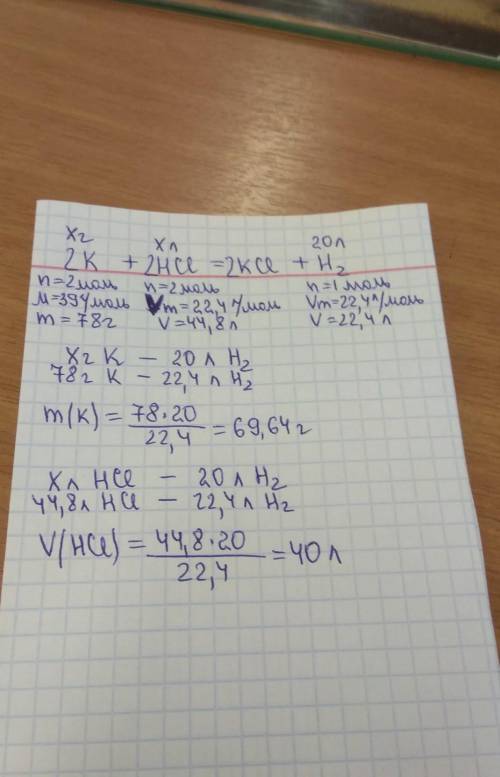 xг xл 20л
2K + 2HCl = 2KCl + H₂
n=2моль n=2моль n=1моль
M=39г/моль Vm=22,4л/моль Vm=22,4л/моль
m=78г V=44,8л V=22,4л
xг K – 20 л H₂
78г K – 22,4 л H₂
m(K) = 78·20 / 22,4 = 69,64г
xл HCl – 20л H₂
44,8л HCl – 22,4л H₂
V(HCl) = 44,8·20 / 22,4 = 40л